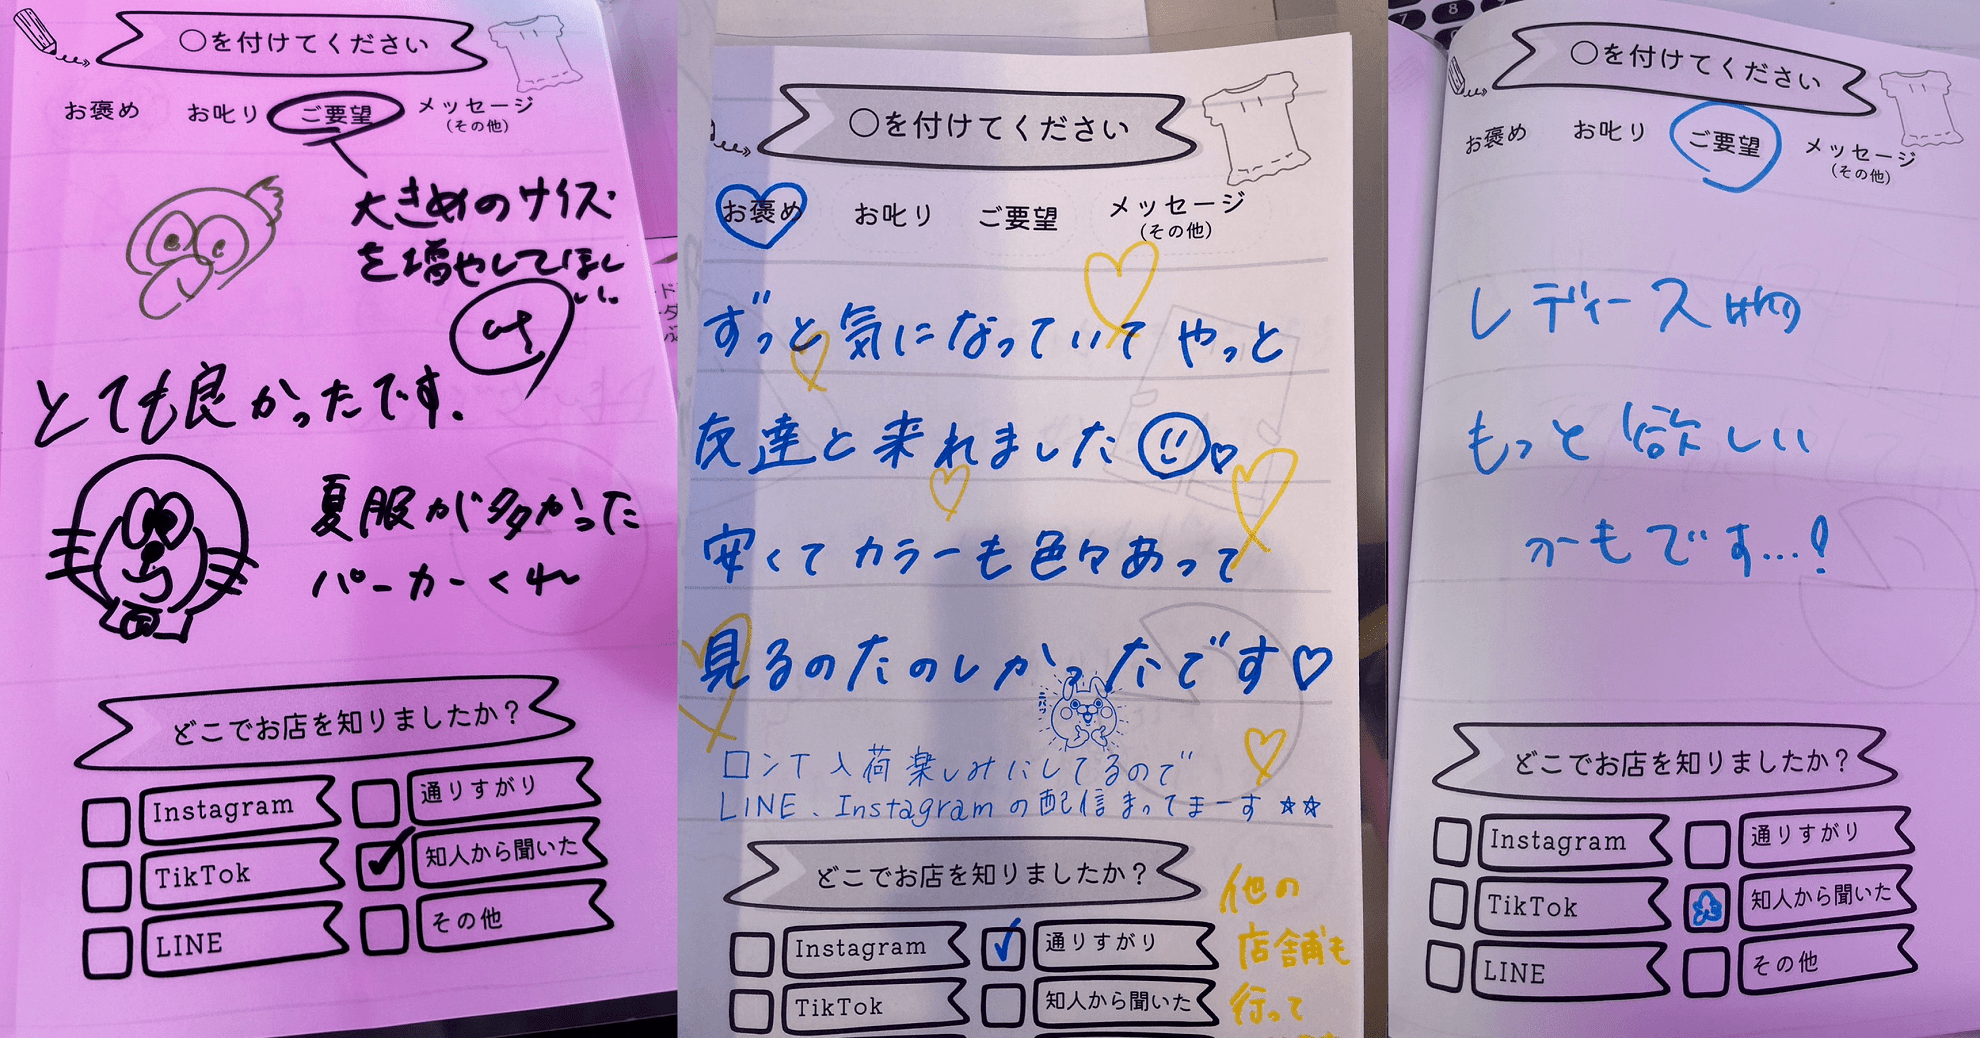 〇を付けてください
お褒め お叱り ご要望 メッセージ
(その他)
大きめのサイズ
を増やしてほし
い。
とても良かったです.
夏服が多かった
パーカーくれ〜
どこでお店を知りましたか？
Instagram 通りすがり
TikTok 知人から聞いた
LINE その他
〇を付けてください
お褒め お叱り ご要望 メッセージ
(その他)
ずっと気になっていて やっと
友達と来れました
安くて カラーも色々あって
見るのたのしかったです♡
ニパッ
ロンT 入荷楽しみにしてるので
LINE、Instagramの配信まってまーす☆☆
どこでお店を知りましたか？
Instagram 通りすがり
TikTok 知人から聞いた
他の
店舗も
行って
〇を付けてください
お褒め お叱り ご要望 メッセージ
(その他)
レディース物
もっと欲しい
かもです…!
どこでお店を知りましたか？
Instagram 通りすがり
TikTok 知人から聞いた
LINE その他